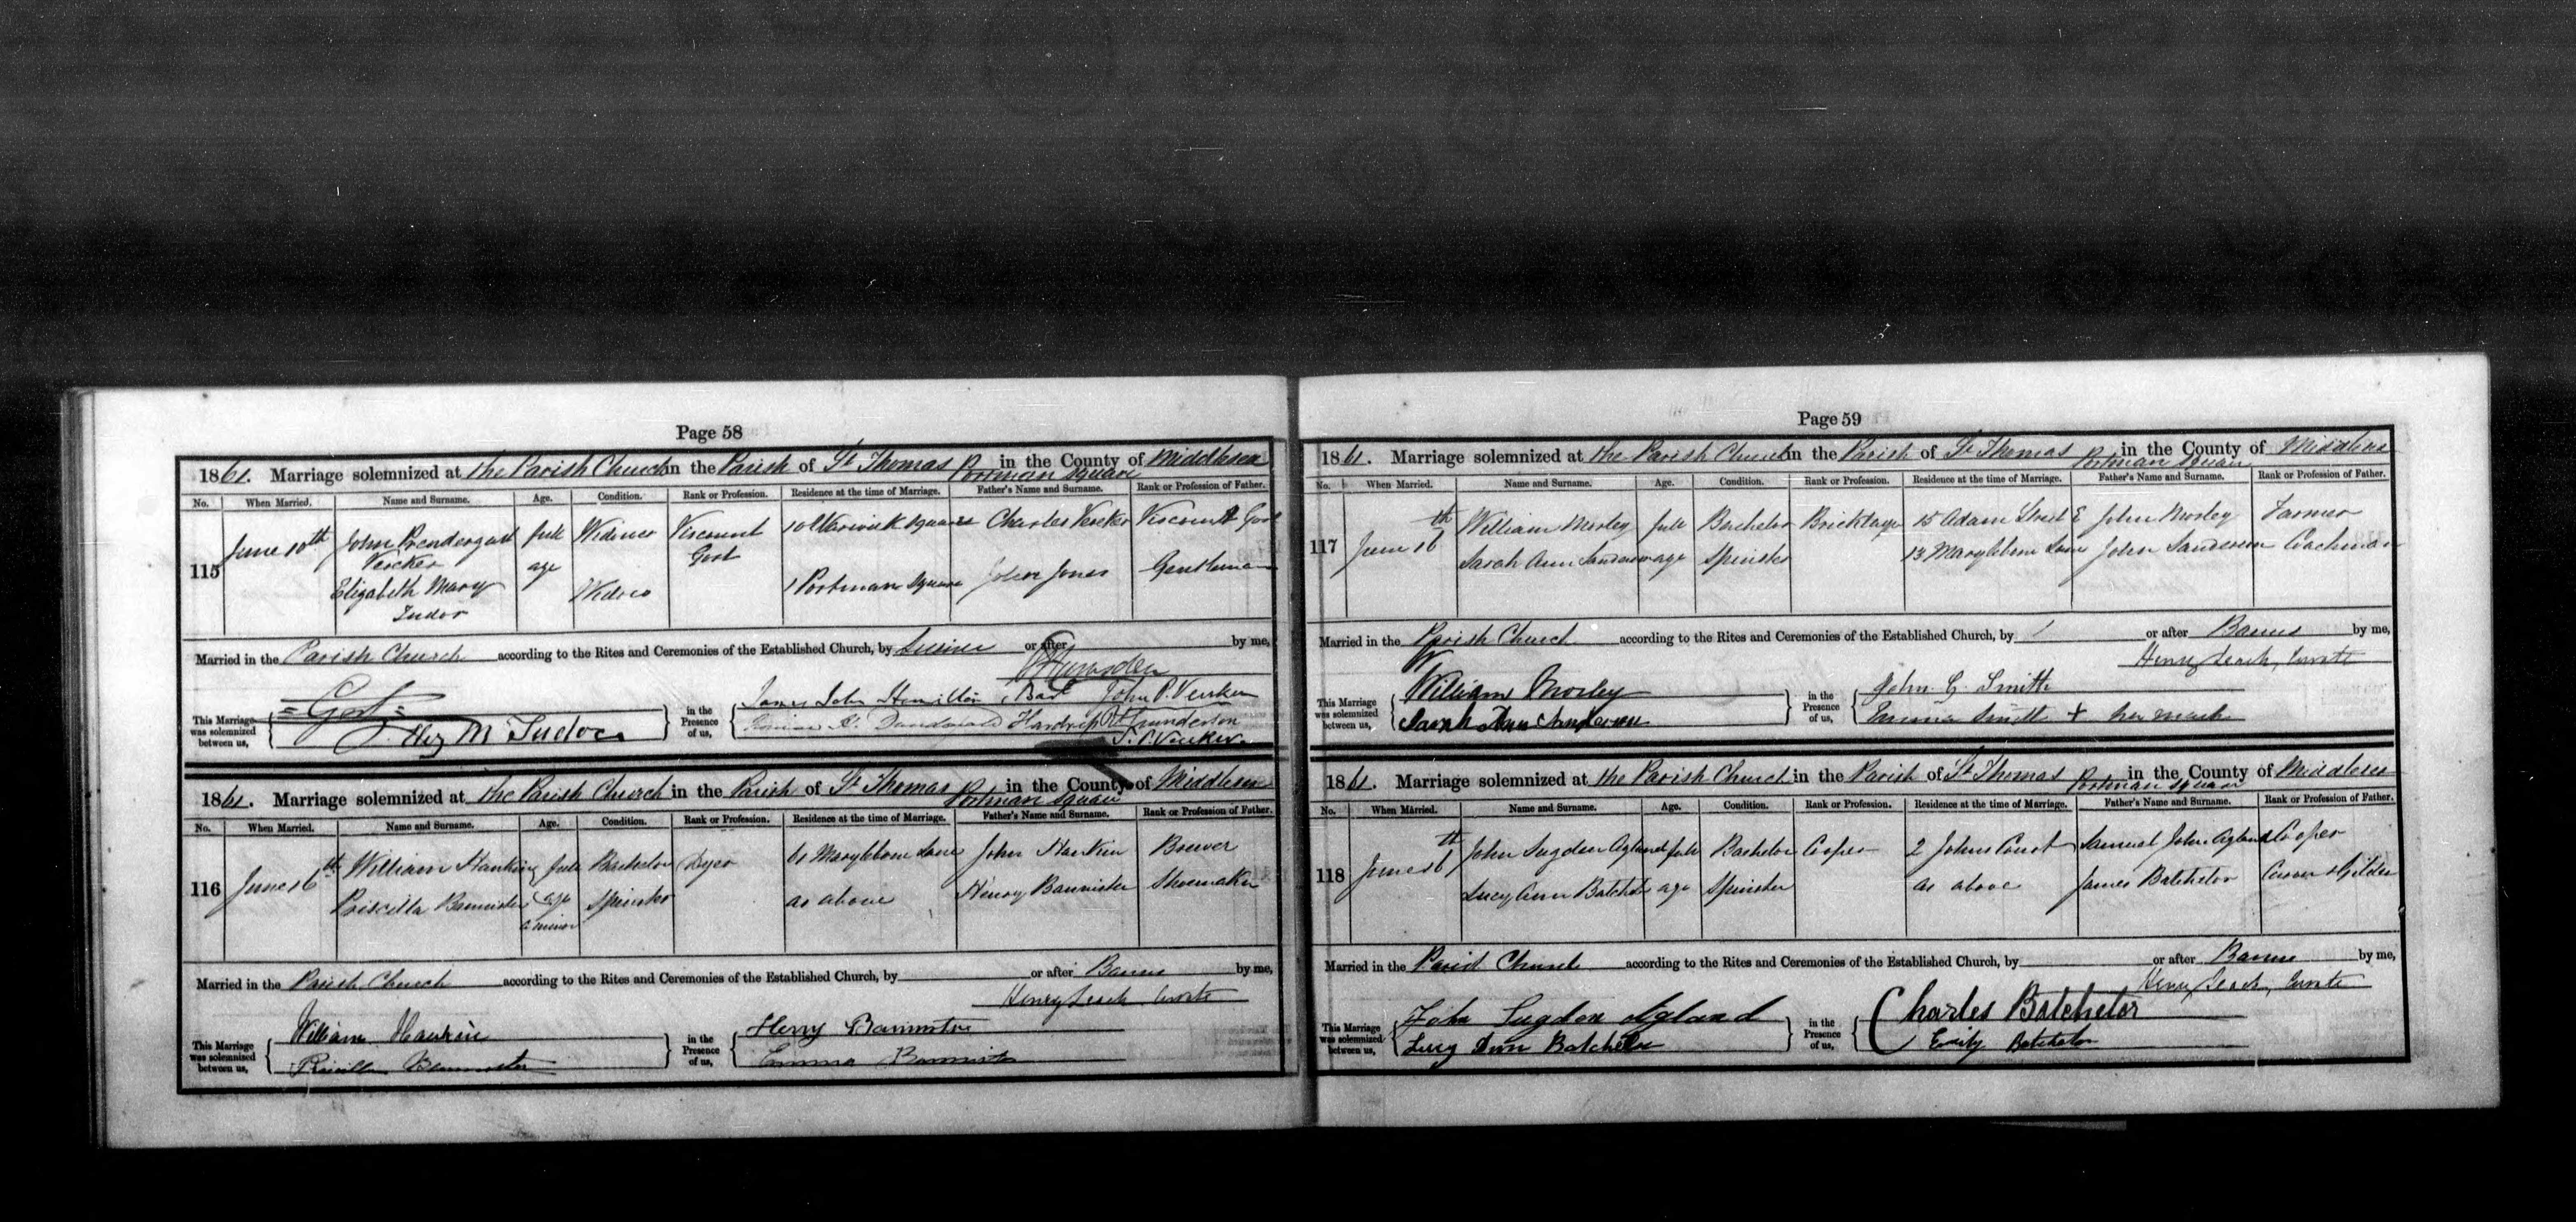 Page 58
1861. Marriage solemnized at the Parish Church in the Parish of St Thomas Portman Square in the County of Middlesex
No. When Married. Name and Surname. Age. Condition. Rank or Profession. Residence at the time of Marriage. Father's Name and Surname. Rank or Profession of Father.
115 June 10th John Prendergast Vereker full age Widower Viscount Gort 10 Warwick Square Charles Vereker Viscount Gort
Elizabeth Mary Tudor Widow 1 Portman Square John Jones Gentleman
Married in the Parish Church according to the Rites and Ceremonies of the Established Church, by License or after by me,
This Marriage was solemnized between us, Gort
Eliz M Tudor
in the Presence of us, James John Hamilton, Bart John P. Vereker
1861. Marriage solemnized at the Parish Church in the Parish of St Thomas Portman Square in the County of Middlesex
No. When Married. Name and Surname. Age. Condition. Rank or Profession. Residence at the time of Marriage. Father's Name and Surname. Rank or Profession of Father.
116 June 16th William Hankin full Bachelor Dyer 61 Marylebone Lane John Hankin Brewer
Priscilla Bannister age a minor Spinster as above Henry Bannister Shoemaker
Married in the Parish Church according to the Rites and Ceremonies of the Established Church, by or after Banns by me,
Henry Leach, Curate
This Marriage was solemnized between us, William Hankin
Priscilla Bannister
in the Presence of us, Henry Bannister
Emma Bannister
Page 59
1861. Marriage solemnized at the Parish Church in the Parish of St Thomas Portman Square in the County of Middlesex
No. When Married. Name and Surname. Age. Condition. Rank or Profession. Residence at the time of Marriage. Father's Name and Surname. Rank or Profession of Father.
117 June 16th William Morley full Bachelor Bricklayer 15 Adam Street E John Morley Farmer
Sarah Ann Sanderson age Spinster 13 Marylebone Lane John Sanderson Coachman
Married in the Parish Church according to the Rites and Ceremonies of the Established Church, by or after Banns by me,
Henry Leach, Curate
This Marriage was solemnized between us, William Morley
Sarah Ann Sanderson
in the Presence of us, John G. Smith
Emma Smith + her mark
1861. Marriage solemnized at the Parish Church in the Parish of St Thomas Portman Square in the County of Middlesex
No. When Married. Name and Surname. Age. Condition. Rank or Profession. Residence at the time of Marriage. Father's Name and Surname. Rank or Profession of Father.
118 June 16th John Sugden Agland full Bachelor Cooper 2 Johns Court Samuel John Agland Cooper
Lucy Ann Batchelor age Spinster as above James Batchelor Carver & Gilder
Married in the Parish Church according to the Rites and Ceremonies of the Established Church, by or after Banns by me,
Henry Leach, Curate
This Marriage was solemnized between us, John Sugden Agland
Lucy Ann Batchelor
in the Presence of us, Charles Batchelor
Emily Batchelor